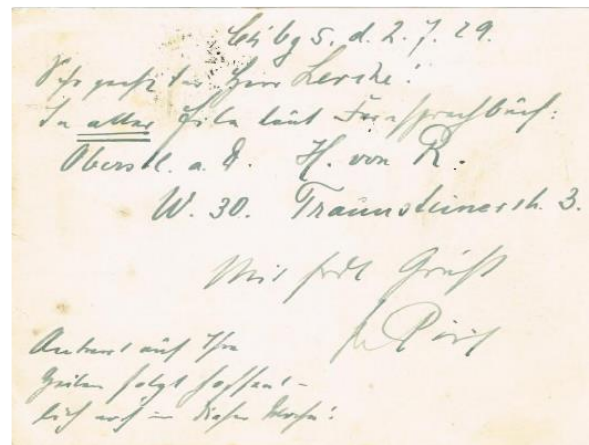 d. 2. 7. 29.
Sehr geehrter Herr Lerche!
In aller Eile laut Fernsprechbuch:
Oberstl. a. D. H. von R.
W. 30. Traunsteinerstr. 3.
Mit frdl Gruß
Antwort auf Ihre
Zeilen folgt hoffent-
lich noch in dieser Woche!